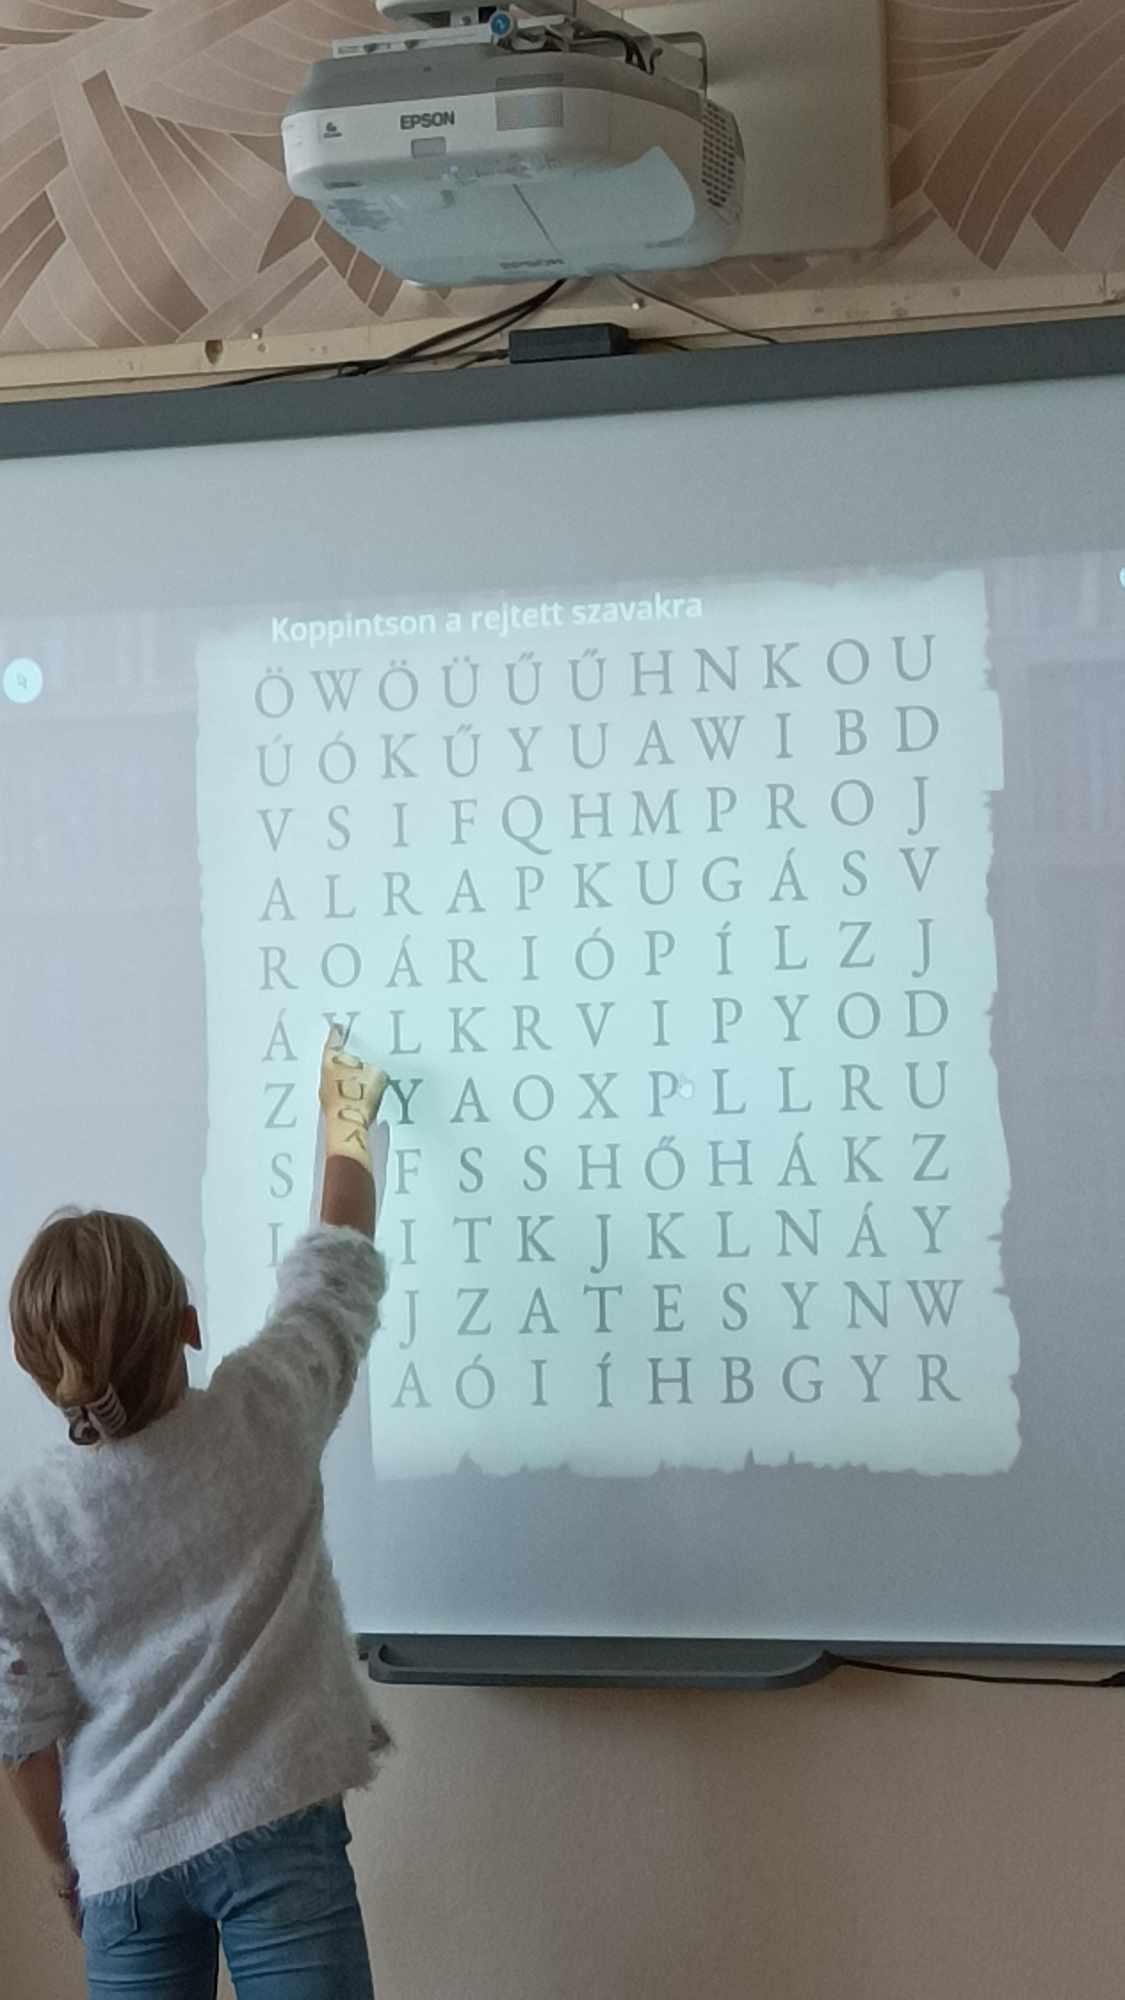 EPSON
EPSON
Koppintson a rejtett szavakra
Ö W Ö Ü Ű Ű H N K O U
Ú Ó K Ű Y U A W I B D
V S I F Q H M P R O J
A L R A P K U G Á S V
R O Á R I Ó P Í L Z J
Á V L K R V I P Y O D
Z Y A O X P L L R U
S F S S H Ő H Á K Z
L I T K J K L N Á Y
J Z A T E S Y N W
A Ó I Í H B G Y R